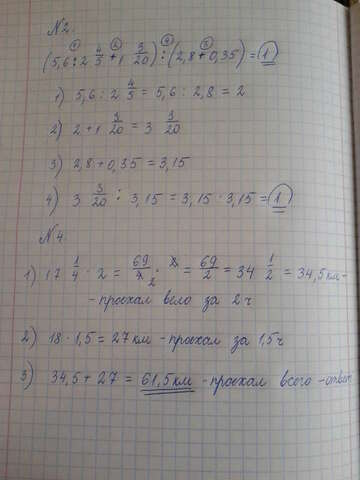 №2.
(5,6 : 2 4/5 + 1 3/20) : (2,8 + 0,35) = 1
1) 5,6 : 2 4/5 = 5,6 : 2,8 = 2
2) 2 + 1 3/20 = 3 3/20
3) 2,8 + 0,35 = 3,15
4) 3 3/20 : 3,15 = 3,15 : 3,15 = 1
№4.
1) 17 1/4 · 2 = 69/4 2 · 2 = 69/2 = 34 1/2 = 34,5 км -
- проехал вело за 2ч
2) 18 · 1,5 = 27 км - проехал за 1,5ч
3) 34,5 + 27 = 61,5 км - проехал всего - ответ